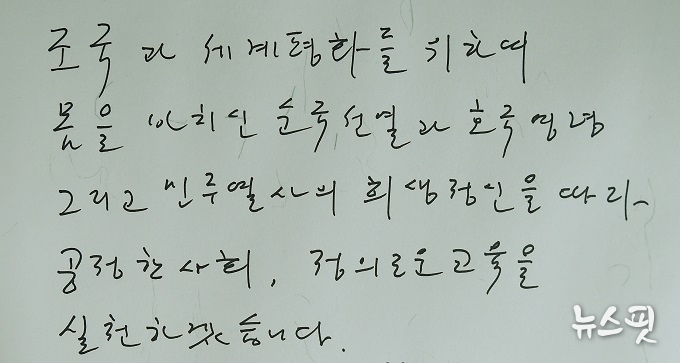 조국과 세계평화를 위하여
몸을 바치신 순국선열과 호국영령
그리고 민주열사의 희생정신을 따라
공정한 사회, 정의로운 교육을
실천하겠습니다.
뉴스핏